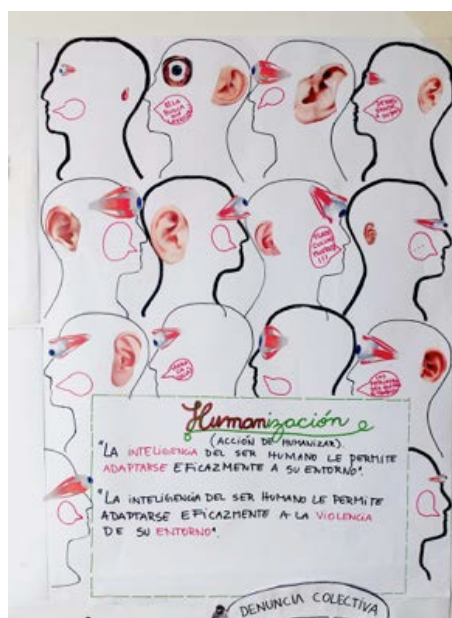 Humanización
(ACCIÓN DE HUMANIZAR).
"LA INTELIGENCIA DEL SER HUMANO LE PERMITE
ADAPTARSE EFICAZMENTE A SU ENTORNO".
"LA INTELIGENCIA DEL SER HUMANO LE PERMITE
ADAPTARSE EFICAZMENTE A LA VIOLENCIA
DE SU ENTORNO".
DENUNCIA COLECTIVA